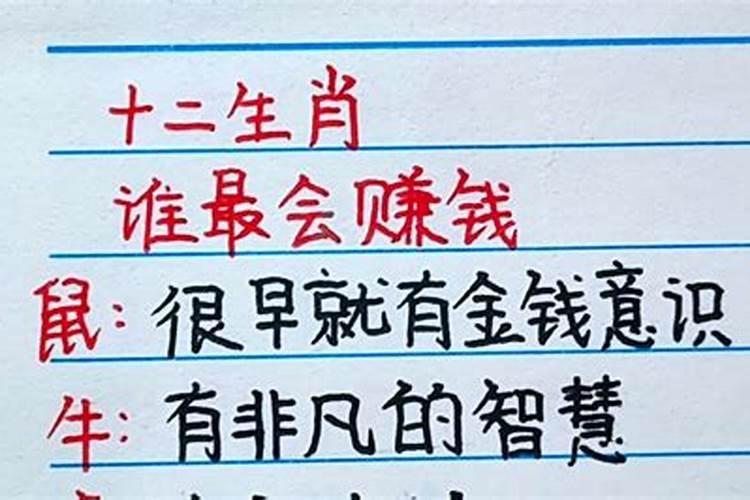 十二生肖
谁最会赚钱
鼠:很早就有金钱意识
牛:有非凡的智慧